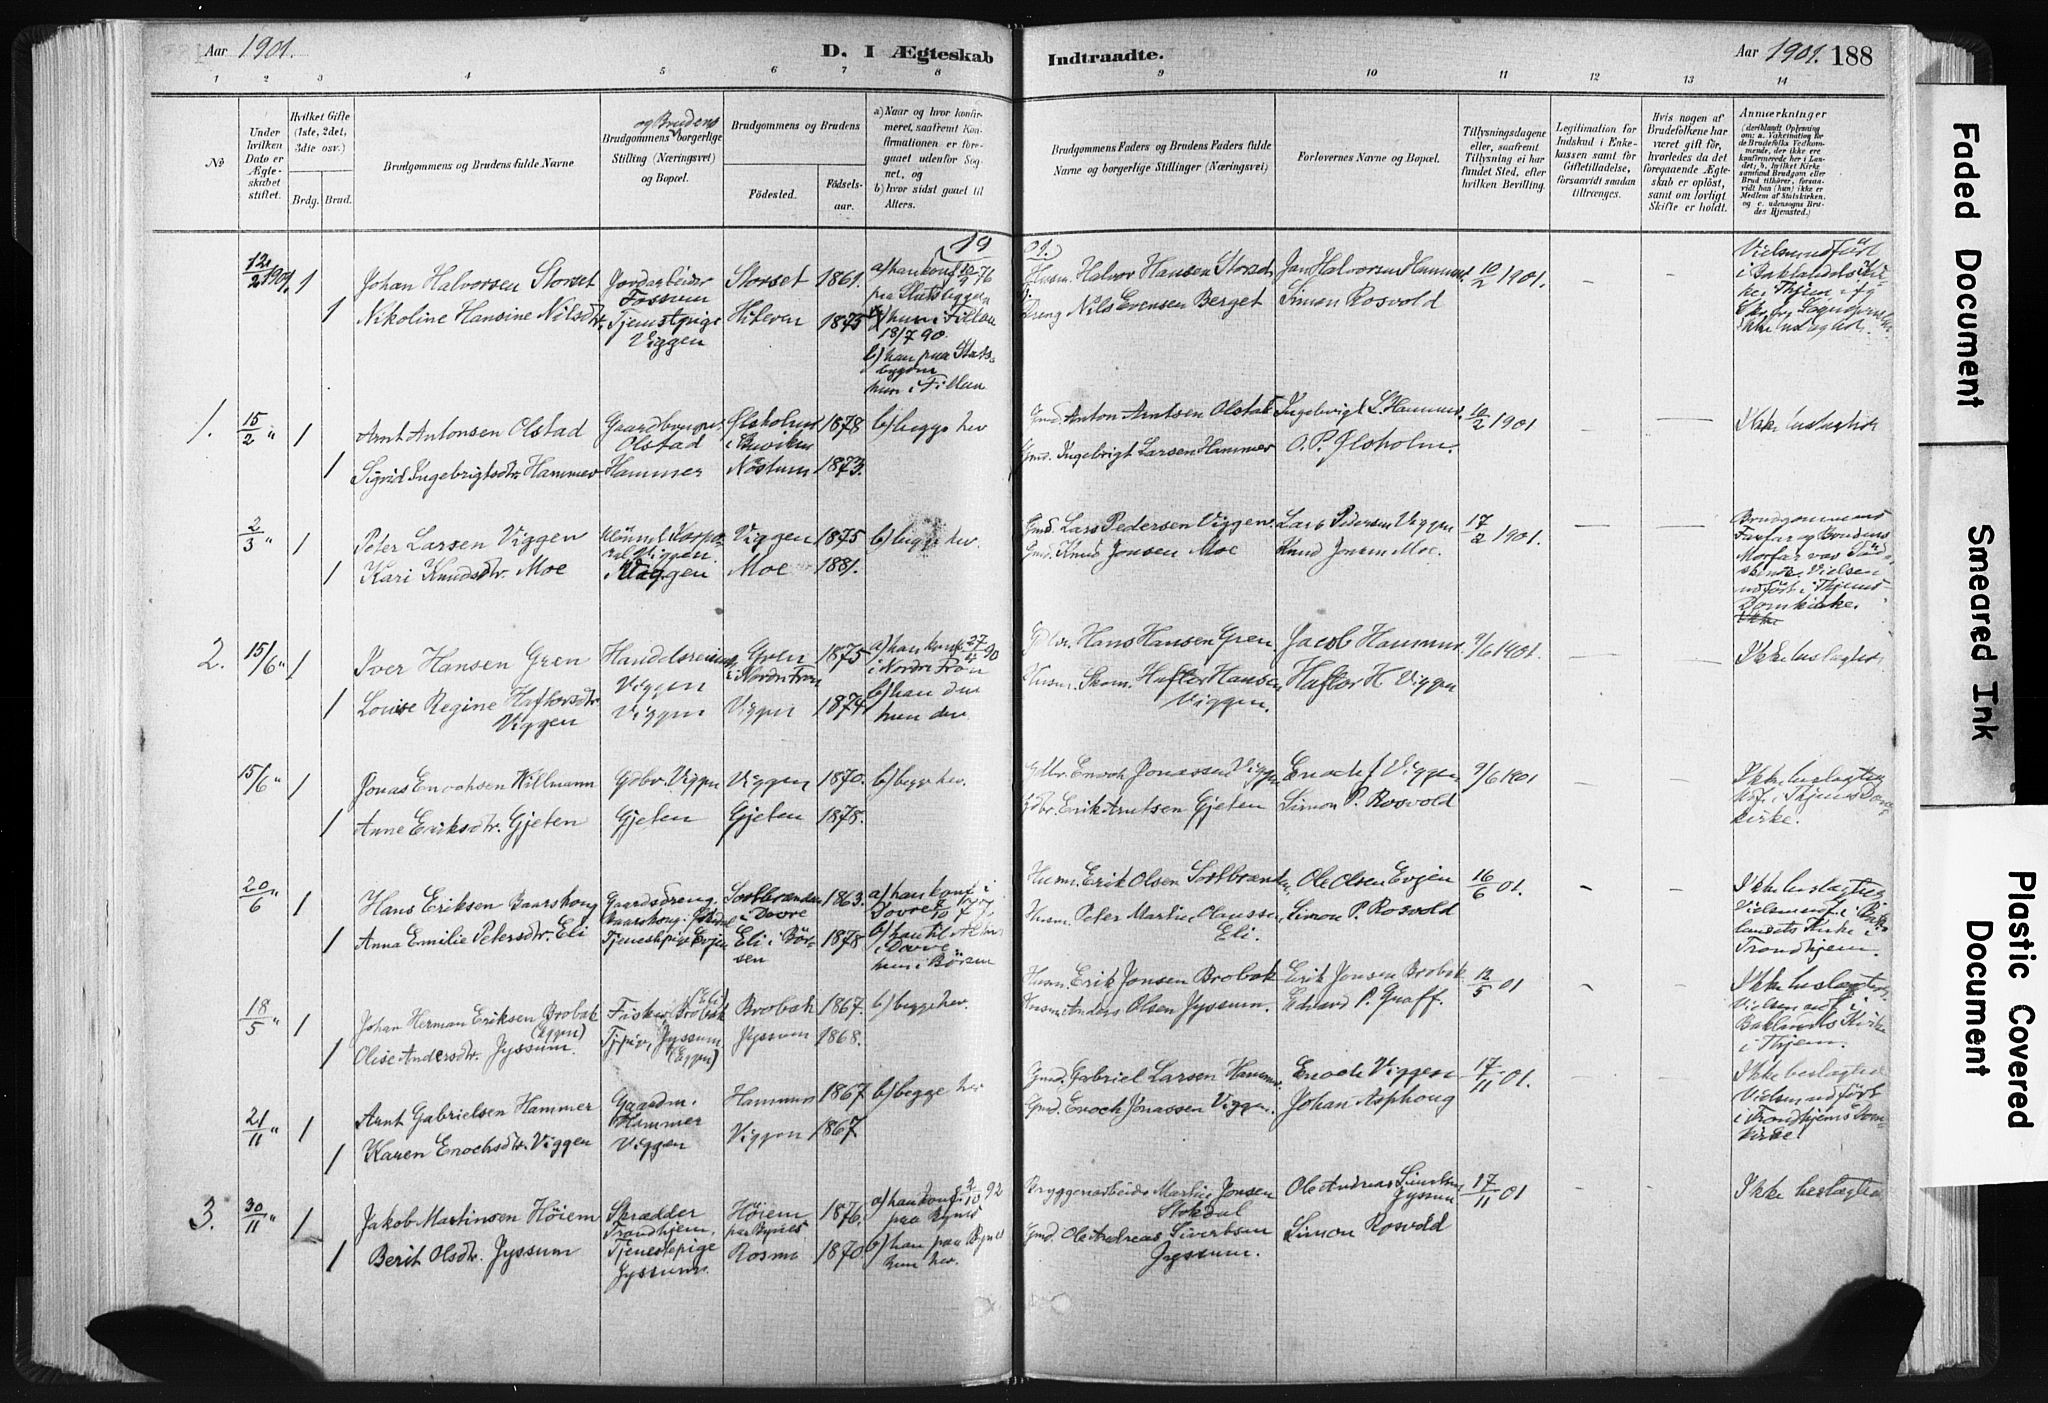 Aar 1901.
D. I Ægteskab
Indtraadte.
Aar 1901. 188
1 2 3 4 5 6 7 8 9 10 11 12 13 14
No
Under hvilken Dato er Ægte-skabet stiftet.
Hvilket Gifte (1ste, 2det, 3die osv.)
Brdg. Brud.
Brudgommens og Brudens fulde Navne
Brudgommens og Brudens borgerlige Stilling (Næringsvei) og Bopæl.
Brudgommens og Brudens
Fødested.
Fødsels-aar.
a) Naar og hvor konfir-meret, saafremt Kon-firmationen er fore-gaaet udenfor Sog-net, og
b) hvor sidst gaaet til Alters.
Brudgommens Faders og Brudens Faders fulde Navne og borgerlige Stillinger (Næringsvei)
Forlovernes Navne og Bopæl.
Tillysningsdagene eller, saafremt Tillysning ei har fundet Sted, efter hvilken Bevilling.
Legitimation for Indskud i Enke-kassen samt for Giftetilladelse, forsaavidt saadan tiltrænges.
Hvis nogen af Brudefolkene har været gift før, hvorledes da det foregaaende Ægte-skab er opløst, samt om lovligt Skifte er holdt.
Anmerkninger
19 01.
12/2 1901. 1 Johan Halvorsen Storset Jordarbeider Fossum Storset 1861. a) han konf. 76
Husm. Halvor Hansen Storset Jan Halvorsen Hammer 10/2 1901.
1 Nikoline Hansine Nilsdtr. Tjenestpige Viggen Hiteren 1875 hun i Fillan 18/7 90.
b) han paa Stads-bygden hun i Fillan
Dreng Nils Evensen Berget Simon Rosvold
1. 15/2 " 1 Arnt Antonsen Olstad Gaardbruger Olstad Ølsholm i Buviken 1878 b) begge her
Gmd. Anton Arntsen Olstad Ingebrigt L. Hammer. 10/2 1901 — — Ikke beslægtede
1 Sigrid Ingebrigtsdtr. Hammer Hammer Nöstum 1873.
Gmd. Ingebrigt Larsen Hammer O. P. Ølsholm.
2/3 " 1 Peter Larsen Viggen Viggen Viggen 1875 b) begge her.
Gmd. Lars Pedersen Viggen. Lars Pedersen Viggen 17/2 1901. — —
1 Kari Knudsdtr. Moe Viggen Moe 1881.
Gmd. Knud Jonsen Moe Knud Jonsen Moe.
Brudgommens Farfar og Brudens Morfar var Søds-kende. Vielsen udført i Thjems Domkirke.
2. 15/6 " 1 Iver Hansen Gren Handelsreisende Viggen Gren i Nordre Fron 1875 a) han konf. 27/4 90 i Nordre Fron
Hans Hansen Gren Jacob Hammer 9/6 1901. — — Ikke beslægtede
1 Louise Regine Haftorsdtr. Viggen Viggen Viggen 1874 b) han der hun der
Husm. Skom. Haftor Hansen Viggen. Haftor H Viggen
15/6 " 1 Jonas Enochsen Willmann Gdbr. Viggen Viggen 1870. b) begge her.
Gdbr. Enoch Jonassen Viggen Enoch J Viggen 9/6 1901 - -
1 Anne Eriksdtr. Gjeten Gjeten Gjeten 1878.
Gdbr. Erik Arntsen Gjeten Simon P. Rosvold
Ikke beslægtede Udf. i Thjems Dom-kirke.
20/6 " 1 Hans Eriksen Baarshoug Gaardsdreng Baarshoug Sørlbrænden i Dovre 1863. a) han konf. i Dovre
Husm. Erik Olsen Sørlbrænden. Ole Olsen Evjen 16/6 01. - -
1 Anna Emilie Petersdtr. Eli Tjenestepige Evjen Eli i Bör-sen 1878 b) han til Alters i Dovre hun i Börsen
Husm. Peter Martin Olaussen Eli. Simon P. Rosvold
Ikke beslægtede. Vielsen udf. i Bak-landets Kirke i Trondhjem.
18/5 " 1 Johan Herman Eriksen Brobak (Eggen) Fisker Brobak Brobak 1867. b) begge her.
Husm. Erik Jonsen Brobak Erik Jonsen Brobak 12/5 01
1 Olise Andersdtr. Jyssum. Tjpige, Jyssum (Eggen) Jyssum 1868.
Husm. Anders Olsen Jyssum. Edvard P. Graff.
Ikke beslægtede. Vielsen udf. i Baklandets Kirke i Thjem.
21/11 " 1 Arnt Gabrielsen Hammer Gaardm. Hammer Hammer 1867 b) begge her
Gmd. Gabriel Larsen Hammer Enoch Viggen 17/11 01. - -
1 Karen Enochsdtr. Viggen Viggen Viggen 1867
Gmd. Enoch Jonassen Viggen. Johan Asphoug
Ikke beslægtede Vielsen udført i Trondhjems Dom-kirke.
3. 30/11 " 1 Jakob Martinsen Höiem Skrædder Trondhjem, Höiem paa Bynes 1876. a) han konf. 2/10 92 paa Bynes
Bryggearbeider Martin Jonsen Stokdal Ole Andreas Sivertsen Jyssum 17/11 01 - - Ikke beslægtede
1 Berit Olsdtr. Jyssum Tjenestepige Jyssum. Rosmo 1870 b) han paa Bynes hun her.
Gmd. Ole Andreas Sivertsen Jyssum. Simon Rosvold
Faded Document
Smeared Ink
Plastic Covered Document